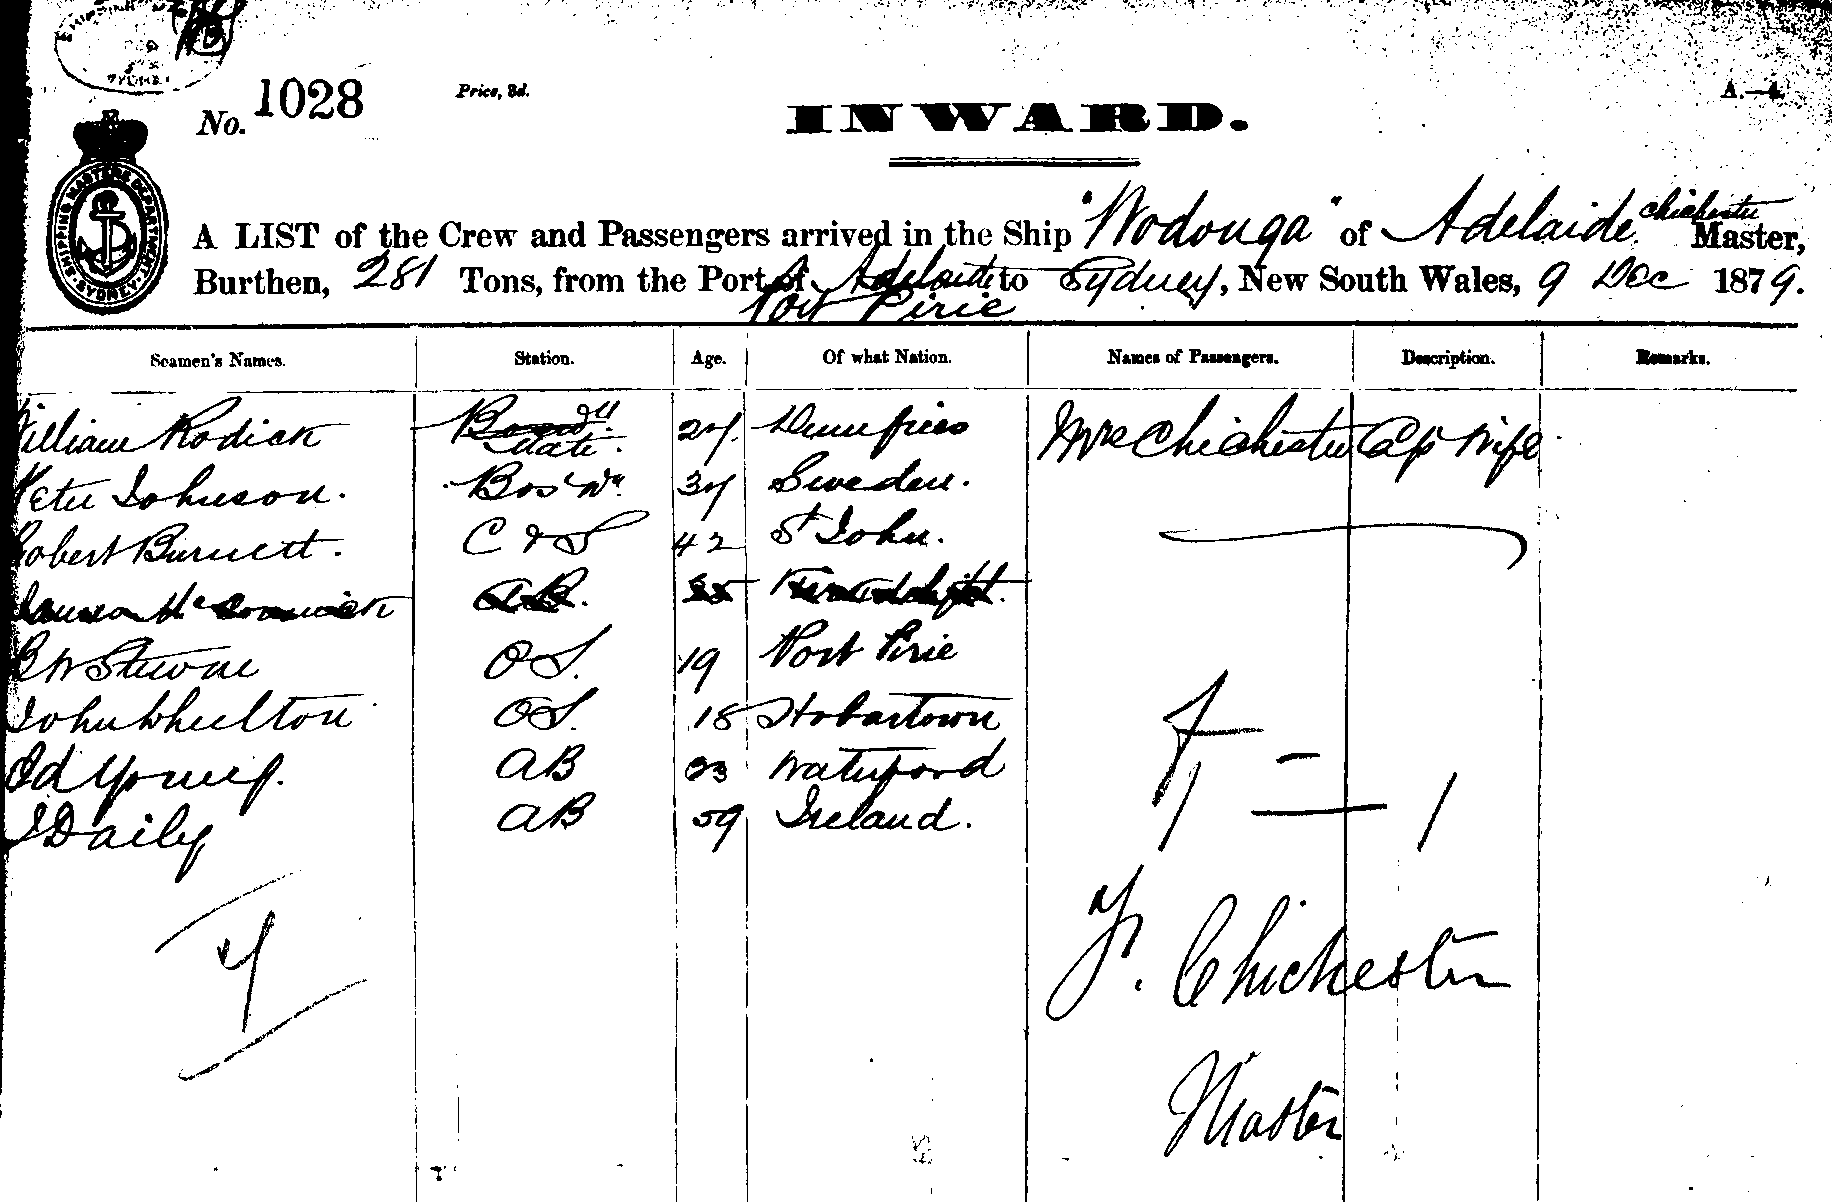 No. 1028 Price, 3d. A.—4.
INWARD.
SHIPPING MASTERS DEPARTMENT SYDNEY
A LIST of the Crew and Passengers arrived in the Ship "Wodonga" of Adelaide Chichester Master,
Burthen, 281 Tons, from the Port of Adelaide to Sydney, New South Wales, 9 Dec 1879.
Port Pirie
Seamen's Names. Station. Age. Of what Nation. Names of Passengers. Description. Remarks.
William Rodick Mate. 27. Dumfries Mrs Chichester Cap Wife
Peter Johnson. Bos'n 37 Sweden.
Robert Burnett. C & S 42 St John.
AB.
OS. 19 Port Pirie
John Whelton OS. 18 Hobartown
Ed Young. AB 23 Waterford
J Daily AB 59 Ireland.
7
7 —
1 — 1
F. Chichester
Master